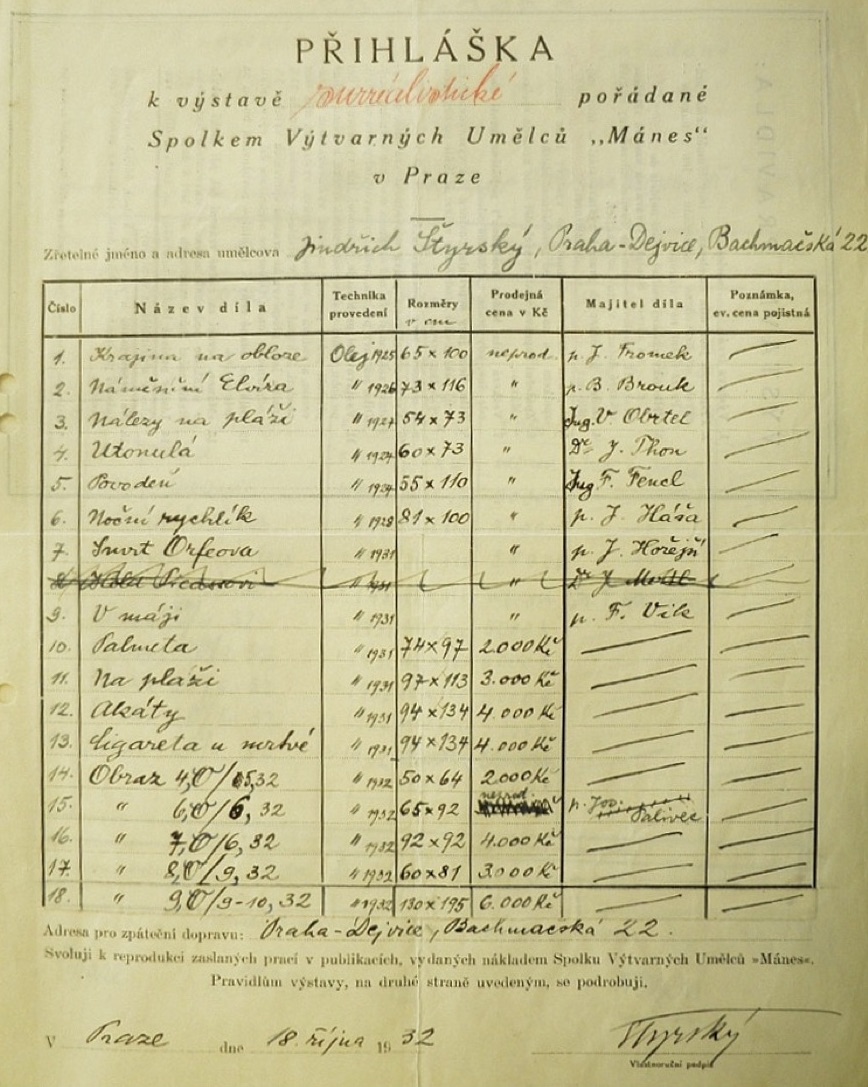 PŘIHLÁŠKA
k výstavě surréalistické pořádané
Spolkem Výtvarných Umělců „Mánes“
v Praze
Zřetelné jméno a adresa umělcova Jindřich Štyrský, Praha-Dejvice, Bachmačská 22
Číslo Název díla Technika provedení Rozměry v cm Prodejná cena v Kč Majitel díla Poznámka, ev. cena pojistná
1. Krajina na obloze Olej 1925 65 x 100 neprod. p. J. Fromek
2. Náměsíční Elvíra " 1926 73 x 116 " p. B. Brouk
3. Nálezy na pláži " 1927 54 x 73 " Ing. V. Obrtel
4. Utonulá " 1927 60 x 73 " Dr J. Thon
5. Povodeň " 1927 55 x 110 " Ing F. Fencl
6. Noční rychlík " 1928 81 x 100 " p. J. Háša
7. Smrt Orfeova " 1931 " p. J. Hořejší
" 1931 " Dr J.
9. V máji " 1931 " p. F. Vik
10. Palmeta " 1931 74 x 97 2.000 Kč
11. Na pláži " 1931 97 x 113 3.000 Kč
12. Akáty " 1931 94 x 134 4.000 Kč
13. Cigareta u mrtvé " 1931 94 x 134 4.000 Kč
14. Obraz 4, O/15, 32 " 1932 50 x 64 2.000 Kč
15. " 6, O/6, 32 " 1932 65 x 92 neprod. p. Jos. Palivec
16. " 7, O/6, 32 " 1932 92 x 92 4.000 Kč
17. " 8, O/9, 32 " 1932 60 x 81 3.000 Kč
18. " 9, O/9-10, 32 " 1932 130 x 195 6.000 Kč
Adresa pro zpáteční dopravu: Praha-Dejvice, Bachmačská 22.
Svoluji k reprodukci zaslaných prací v publikacích, vydaných nákladem Spolku Výtvarných Umělců »Mánes«.
Pravidlům výstavy, na druhé straně uvedeným, se podrobuji.
V Praze dne 18. října 1932 Štyrský
Vlastnoruční podpis